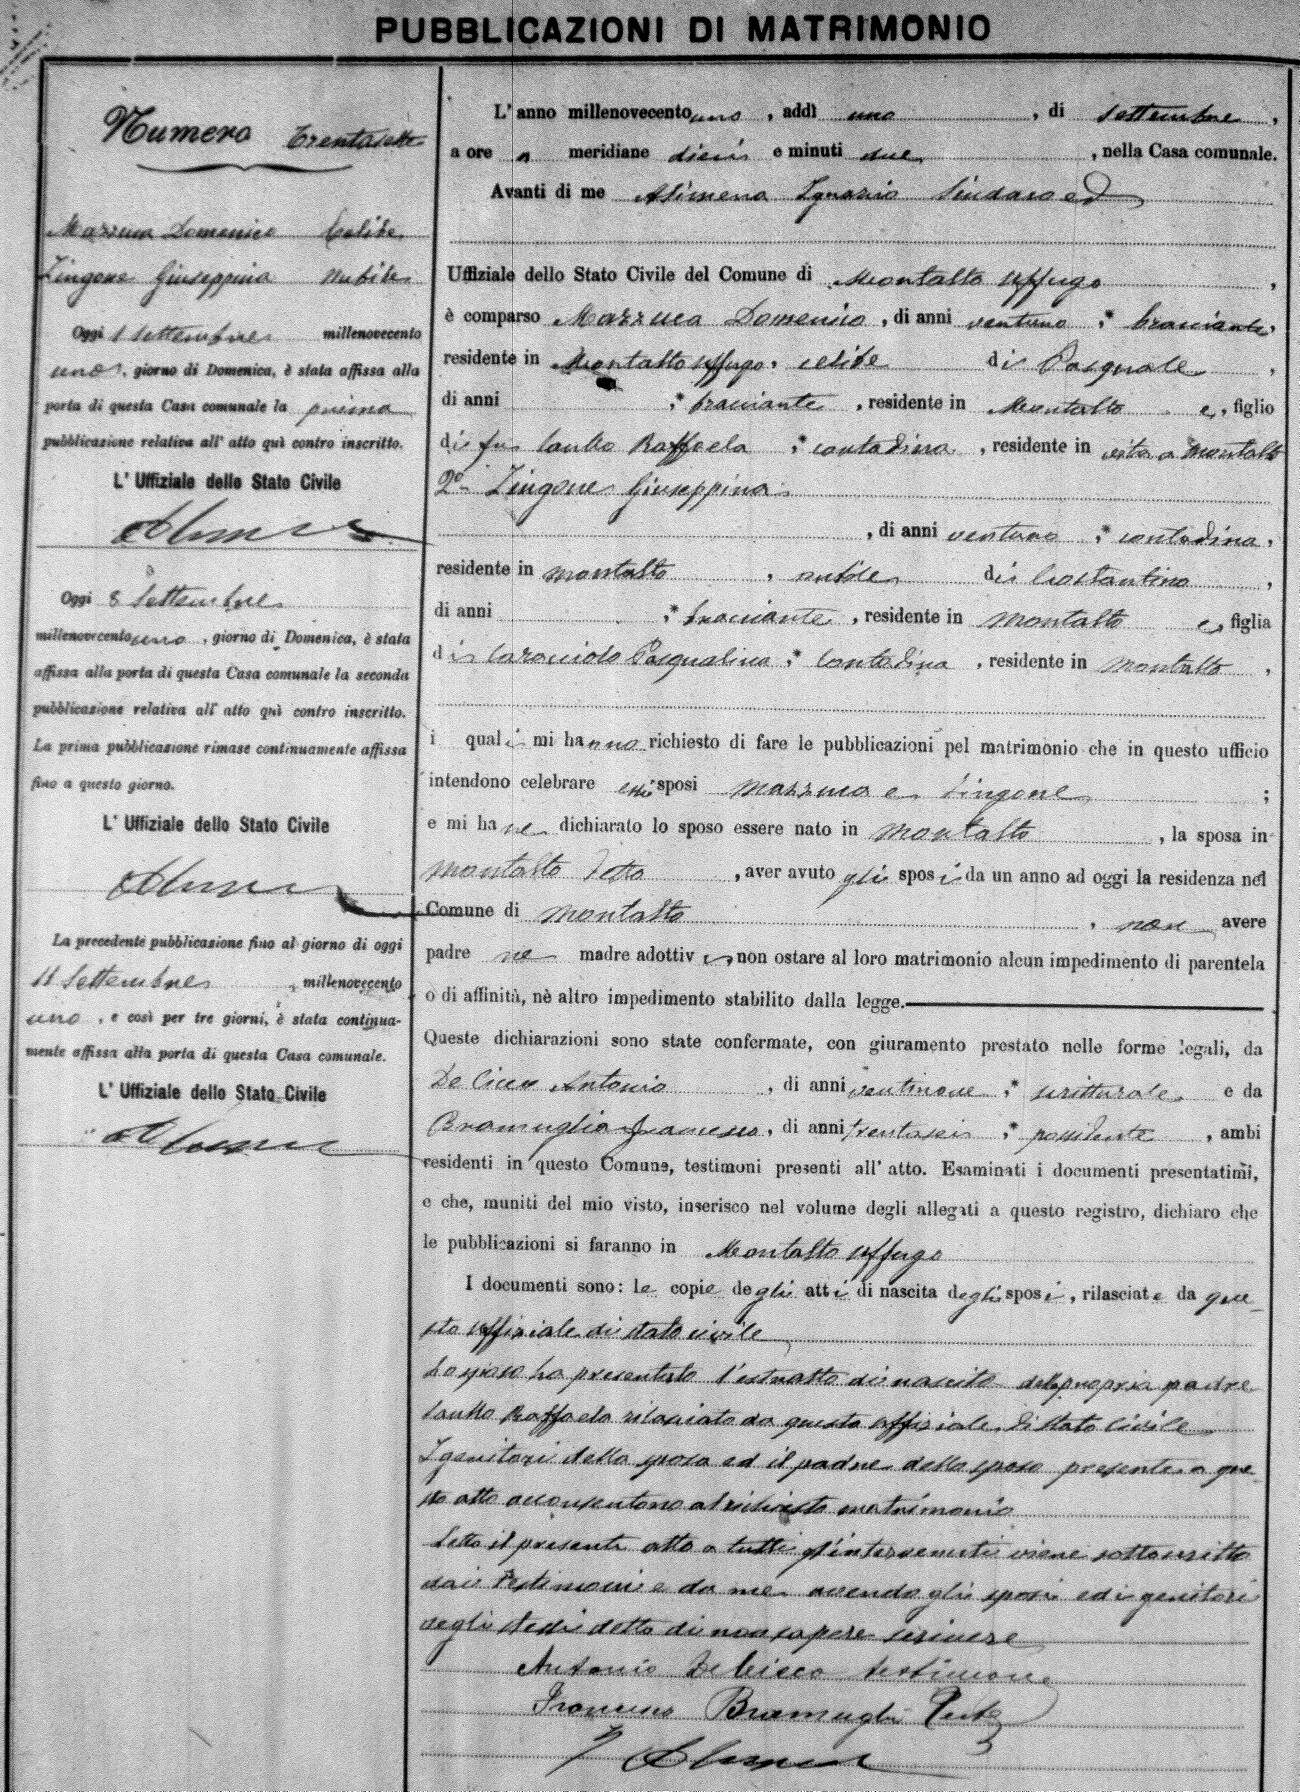 PUBBLICAZIONI DI MATRIMONIO
Numero Trentasette
Mazzuca Domenico Celibe
Zingone Giuseppina nubile
Oggi 1 Settembre millenovecento
uno, giorno di Domenica, è stata affissa alla
porta di questa Casa comunale la prima
pubblicazione relativa all' atto quì contro inscritto.
L' Uffiziale dello Stato Civile
Oggi 8 Settembre
millenovecento uno, giorno di Domenica, è stata
affissa alla porta di questa Casa comunale la seconda
pubblicazione relativa all' atto quì contro inscritto.
La prima pubblicazione rimase continuamente affissa
fino a questo giorno.
L' Uffiziale dello Stato Civile
La precedente pubblicazione fino al giorno di oggi
11 Settembre, millenovecento
uno, e così per tre giorni, è stata continua-
mente affissa alla porta di questa Casa comunale.
L' Uffiziale dello Stato Civile
L' anno millenovecento uno, addì uno, di Settembre,
a ore a meridiane dieci e minuti due, nella Casa comunale.
Avanti di me Alimena Ignazio Sindaco ed
Uffiziale dello Stato Civile del Comune di Montalto Uffugo,
è comparso Mazzuca Domenico, di anni ventuno, bracciante,
residente in Montalto Uffugo, celibe di Pasquale,
di anni , bracciante, residente in Montalto e, figlio
di fu Raffaela, contadina, residente in vita a Montalto
2° Zingone Giuseppina
, di anni ventuno, contadina,
residente in Montalto, nubile di Costantino,
di anni , bracciante, residente in Montalto e, figlia
di Caracciolo Pasqualina, contadina, residente in Montalto,
i quali mi hanno richiesto di fare le pubblicazioni pel matrimonio che in questo ufficio
intendono celebrare essi sposi Mazzuca e Zingone;
e mi ha ne dichiarato lo sposo essere nato in Montalto, la sposa in
Montalto detto, aver avuto gli sposi da un anno ad oggi la residenza nel
Comune di Montalto, non avere
padre ne madre adottivi, non ostare al loro matrimonio alcun impedimento di parentela
o di affinità, nè altro impedimento stabilito dalla legge.
Queste dichiarazioni sono state confermate, con giuramento prestato nelle forme legali, da
De Cicco Antonio, di anni ventinove, scritturale e da
Bramuglia Francesco, di anni trentasei, possidente, ambi
residenti in questo Comune, testimoni presenti all' atto. Esaminati i documenti presentatimi,
e che, muniti del mio visto, inserisco nel volume degli allegati a questo registro, dichiaro che
le pubblicazioni si faranno in Montalto Uffugo
I documenti sono: le copie degli atti di nascita degli sposi, rilasciate da que-
sto uffiziale di stato civile
Lo sposo ha presentato l'estratto di nascita della propria madre
Raffaela rilasciato da questo uffiziale di stato civile
I genitori della sposa ed il padre dello sposo presente a que-
sto atto acconsentono al richiesto matrimonio
Letto il presente atto a tutti gl'intervenuti viene sottoscritto
dai testimoni e da me avendo gli sposi ed i genitori
degli stessi detto di non sapere scrivere
Antonio De Cicco testimone
Francesco Bramuglia